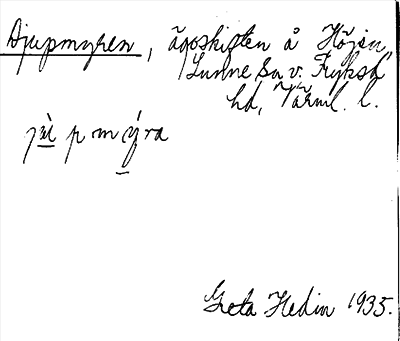 Djupmyren, ägoskiften å Höjen,
Sunne sn v. Fryksd.
hd, Värml. l.
jùpmýra
Greta Hedin 1935.